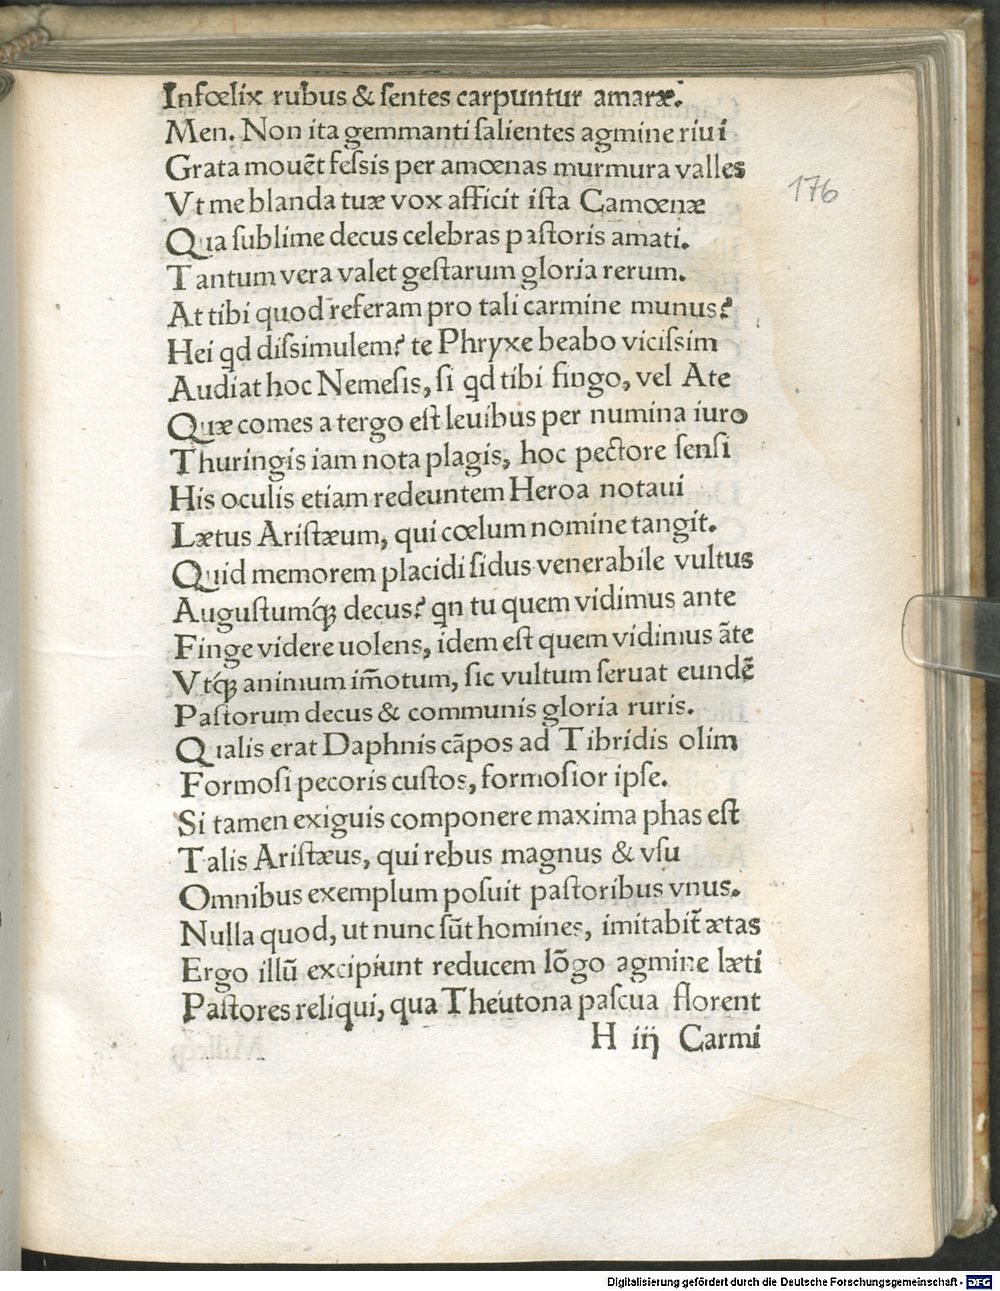 Infœlix rubus & ſentes carpuntur amaræ.
Men. Non ita gemmanti ſalientes agmine riui
Grata mouẽt feſsis per amœnas murmura valles
Vt me blanda tuæ vox afficit iſta Camœnæ
Qua ſublime decus celebras paſtoris amati.
Tantum vera valet geſtarum gloria rerum.
At tibi quod referam pro tali carmine munus?
Hei qd diſsimulem? te Phryxe beabo viciſsim
Audiat hoc Nemeſis, ſi qd tibi fingo, vel Ate
Quæ comes a tergo eſt leuibus per numina iuro
Thuringis iam nota plagis, hoc pectore ſenſi
His oculis etiam redeuntem Heroa notaui
Lætus Ariſtæum, qui cœlum nomine tangit.
Quid memorem placidi ſidus venerabile vultus
Auguſtumꝗ decus? qn tu quem vidimus ante
Finge videre uolens, idem eſt quem vidimus ãte
Vtꝗ animum im̃otum, ſic vultum ſeruat eundẽ
Paſtorum decus & communis gloria ruris.
Qualis erat Daphnis cãpos ad Tibridis olim
Formoſi pecoris cuſtos, formoſior ipſe.
Si tamen exiguis componere maxima phas eſt
Talis Ariſtæus, qui rebus magnus & vſu
Omnibus exemplum poſuit paſtoribus vnus.
Nulla quod, ut nunc ſũt homines, imitabit̃ ætas
Ergo illũ excipiunt reducem lõgo agmine læti
Paſtores reliqui, qua Theutona paſcua florent
H iij Carmi
176
Digitalisierung gefördert durch die Deutsche Forschungsgemeinschaft - DFG